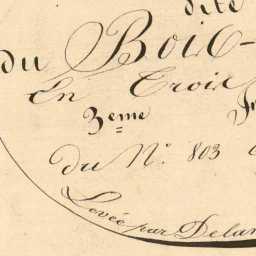 dite
du Boic-
En Croix
3eme
du N.º 803
Levée par Delan